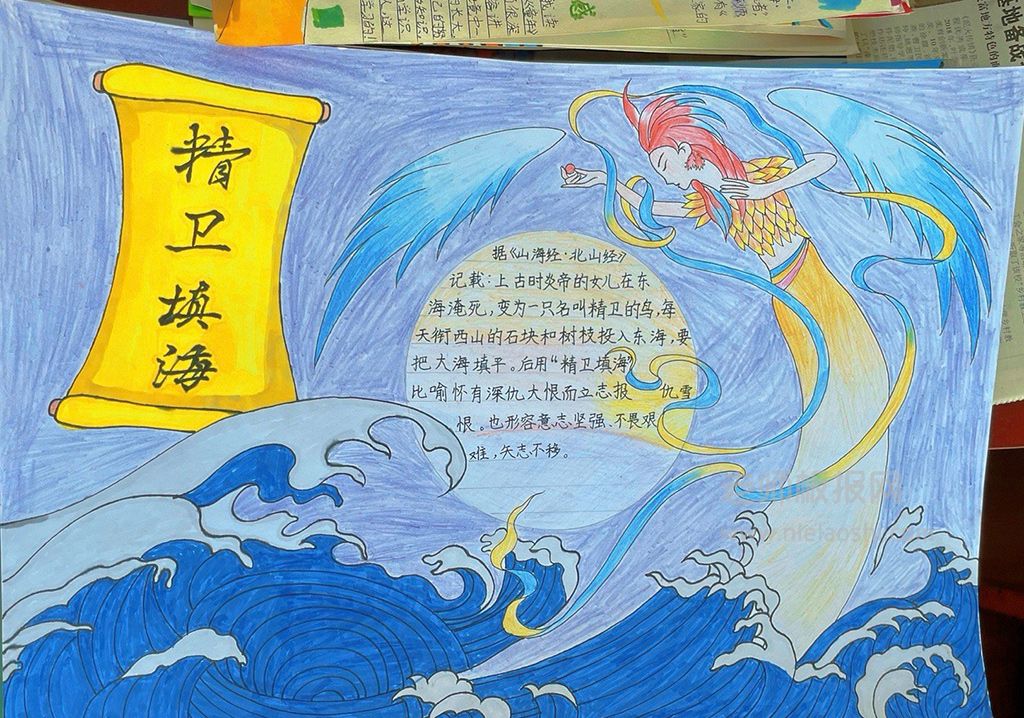 精
卫
填
海
据《山海经·北山经》
记载：上古时炎帝的女儿在东
海淹死，变为一只名叫精卫的鸟，每
天衔西山的石块和树枝投入东海，要
把大海填平。后用“精卫填海”
比喻怀有深仇大恨而立志报仇雪
恨。也形容意志坚强、不畏艰
难，矢志不移。